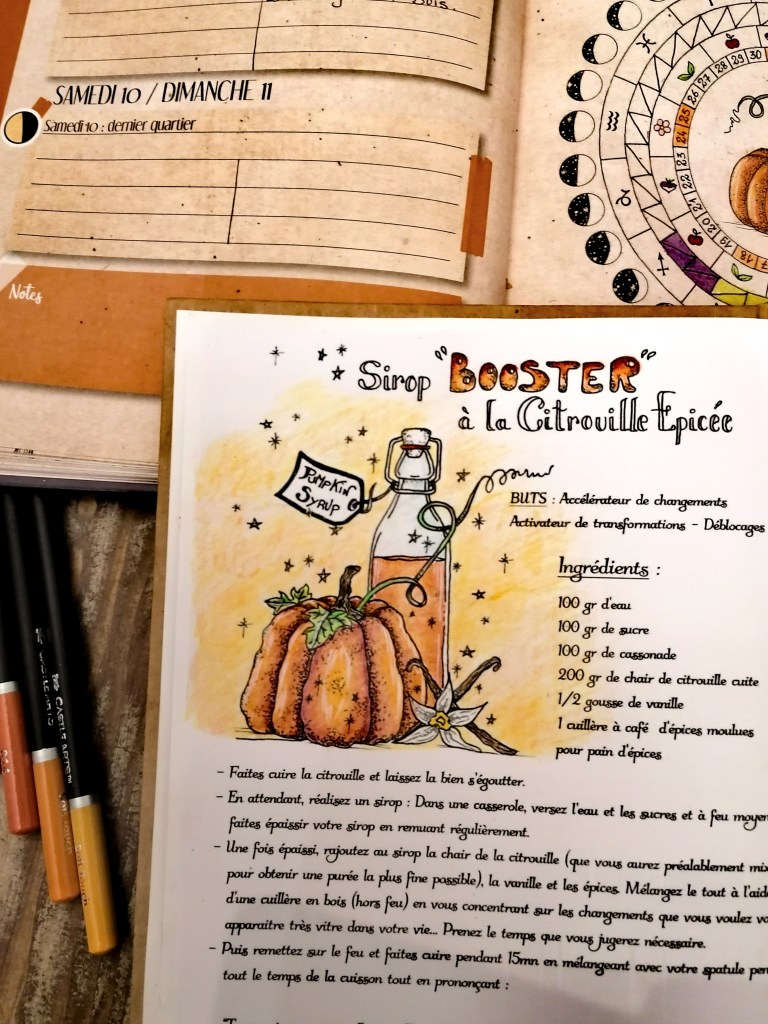 SAMEDI 10 / DIMANCHE 11
Samedi 10 : dernier quartier
Notes
30
29
28
27
26
25
24
23
22
21
20
19
18
Sirop "BOOSTER"
à la Citrouille Epicée
PUMPKIN
SYRUP
BUTS : Accélérateur de changements
Activateur de transformations - Déblocages
Ingrédients :
100 gr d'eau
100 gr de sucre
100 gr de cassonade
200 gr de chair de citrouille cuite
1/2 gousse de vanille
1 cuillère à café d'épices moulues
pour pain d'épices
- Faites cuire la citrouille et laissez la bien s'égoutter.
- En attendant, réalisez un sirop : Dans une casserole, versez l'eau et les sucres et à feu moyen
faites épaissir votre sirop en remuant régulièrement.
- Une fois épaissi, rajoutez au sirop la chair de la citrouille (que vous aurez préalablement mix
pour obtenir une purée la plus fine possible), la vanille et les épices. Mélangez le tout à l'aid
d'une cuillère en bois (hors feu) en vous concentrant sur les changements que vous voulez vo
apparaitre très vitre dans votre vie... Prenez le temps que vous jugerez nécessaire.
- Puis remettez sur le feu et faites cuire pendant 15mn en mélangeant avec votre spatule pen
tout le temps de la cuisson tout en prononçant :
CASTLE ARTS